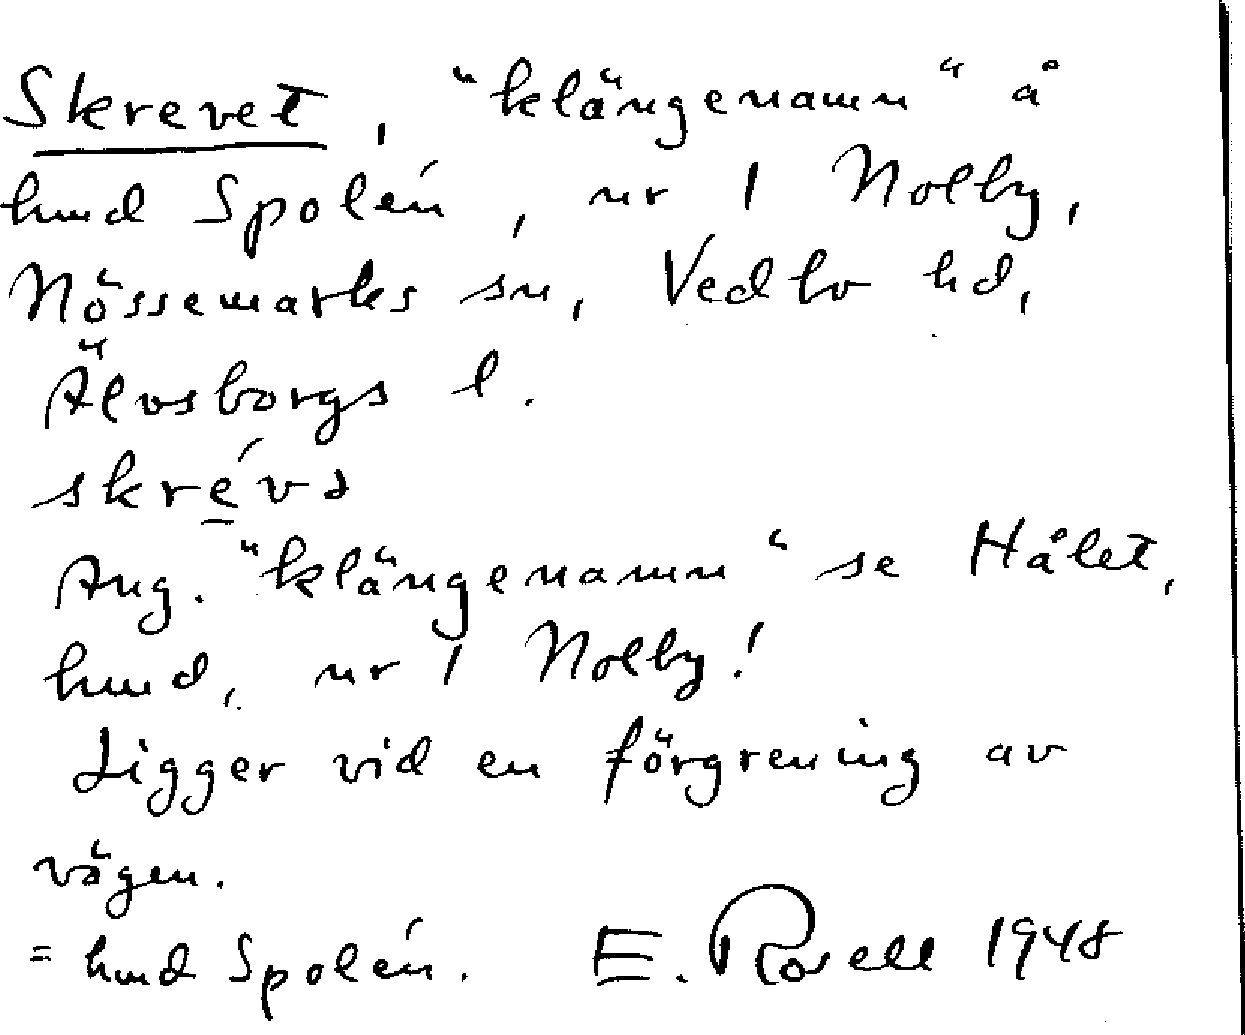 Skrevet, "klängenamn" å
hmd Spolén, nr 1 Nolby,
Nössemarks sn, Vedbo hd,
Älvsborgs l.
skrévə
Ang. "klängenamn" se Hålet,
hmd, nr 1 Nolby!
Ligger vid en förgrening av
vägen.
= hmd Spolén. E. Rosell 1948